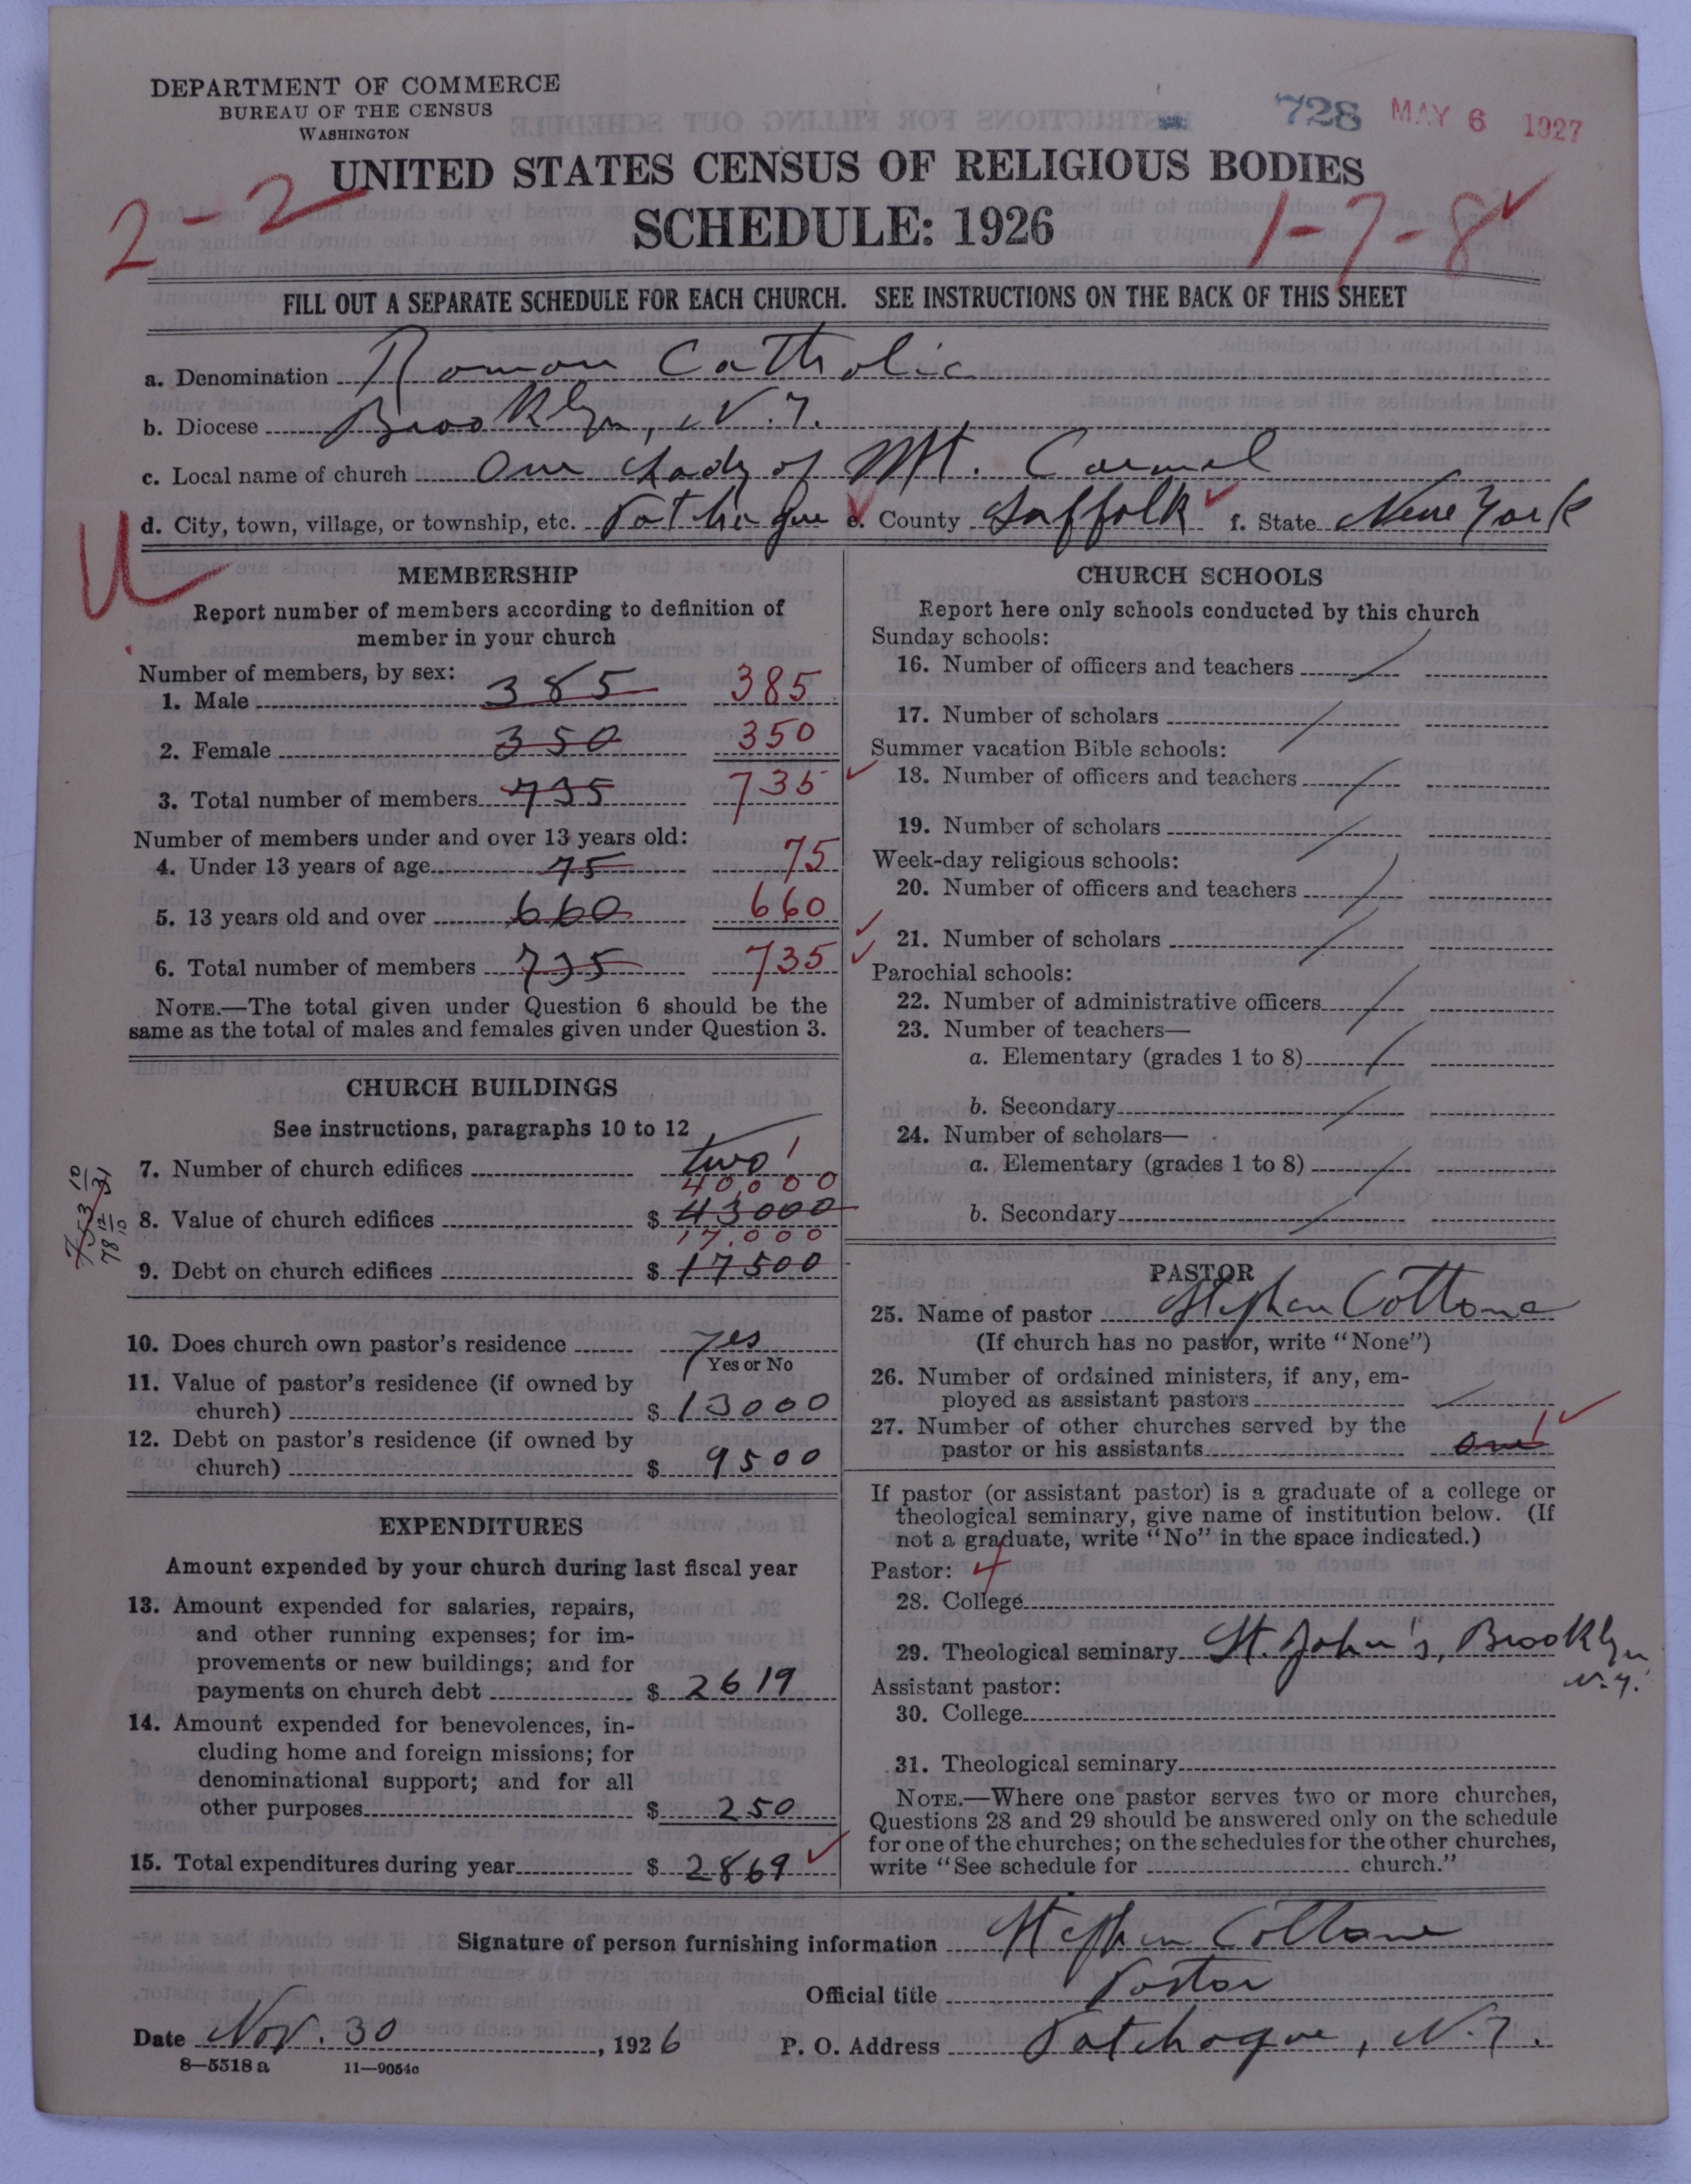 DEPARTMENT OF COMMERCE
BUREAU OF THE CENSUS
WASHINGTON
728 MAY 6 1927
UNITED STATES CENSUS OF RELIGIOUS BODIES
2-2
SCHEDULE: 1926
1-7-8
FILL OUT A SEPARATE SCHEDULE FOR EACH CHURCH. SEE INSTRUCTIONS ON THE BACK OF THIS SHEET
a. Denomination Roman Catholic
b. Diocese Brooklyn, N.Y.
c. Local name of church Our Lady of Mt. Carmel
d. City, town, village, or township, etc. Patchogue e. County Suffolk f. State New York
U
MEMBERSHIP
Report number of members according to definition of
member in your church
Number of members, by sex:
1. Male 385 385
2. Female 350 350
3. Total number of members 735 735
Number of members under and over 13 years old:
4. Under 13 years of age 75 75
5. 13 years old and over 660 660
6. Total number of members 735 735
NOTE.—The total given under Question 6 should be the
same as the total of males and females given under Question 3.
CHURCH BUILDINGS
See instructions, paragraphs 10 to 12
7. Number of church edifices two 1
40,000
8. Value of church edifices $ 43000
17,000
9. Debt on church edifices $ 17500
10. Does church own pastor's residence yes
Yes or No
11. Value of pastor's residence (if owned by
church) $ 13000
12. Debt on pastor's residence (if owned by
church) $ 9500
EXPENDITURES
Amount expended by your church during last fiscal year
13. Amount expended for salaries, repairs,
and other running expenses; for im-
provements or new buildings; and for
payments on church debt $ 2619
14. Amount expended for benevolences, in-
cluding home and foreign missions; for
denominational support; and for all
other purposes $ 250
15. Total expenditures during year $ 2869
CHURCH SCHOOLS
Report here only schools conducted by this church
Sunday schools:
16. Number of officers and teachers
17. Number of scholars
Summer vacation Bible schools:
18. Number of officers and teachers
19. Number of scholars
Week-day religious schools:
20. Number of officers and teachers
21. Number of scholars
Parochial schools:
22. Number of administrative officers
23. Number of teachers—
a. Elementary (grades 1 to 8)
b. Secondary
24. Number of scholars—
a. Elementary (grades 1 to 8)
b. Secondary
PASTOR
25. Name of pastor Stephen Cottone
(If church has no pastor, write "None")
26. Number of ordained ministers, if any, em-
ployed as assistant pastors
27. Number of other churches served by the
pastor or his assistants one 1
If pastor (or assistant pastor) is a graduate of a college or
theological seminary, give name of institution below. (If
not a graduate, write "No" in the space indicated.)
Pastor: 4
28. College
29. Theological seminary St. John's, Brooklyn
N.Y.
Assistant pastor:
30. College
31. Theological seminary
NOTE.—Where one pastor serves two or more churches,
Questions 28 and 29 should be answered only on the schedule
for one of the churches; on the schedules for the other churches,
write "See schedule for church."
Signature of person furnishing information Stephen Cottone
Official title Pastor
Date Nov. 30, 1926 P. O. Address Patchogue, N.Y.
8—5518 a 11—9054c